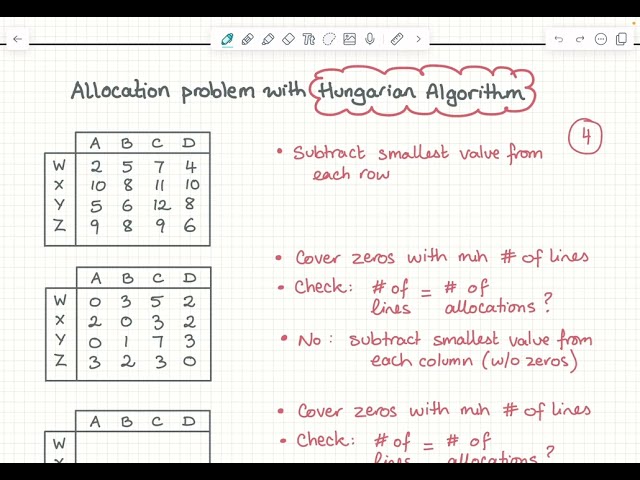 Allocation problem with Hungarian Algorithm
4
A B C D
W 2 5 7 4
X 10 8 11 10
Y 5 6 12 8
Z 9 8 9 6
• Subtract smallest value from
each row
A B C D
W 0 3 5 2
X 2 0 3 2
Y 0 1 7 3
Z 3 2 3 0
• Cover zeros with min # of lines
• Check: # of lines = # of allocations?
• No: subtract smallest value from
each column (w/o zeros)
A B C D
W
X
• Cover zeros with min # of lines
• Check: # of lines = # of allocations?